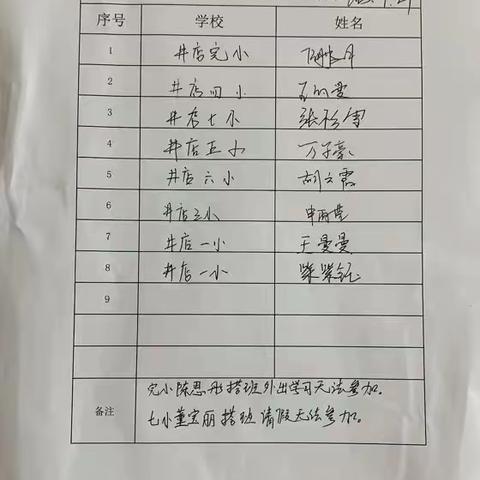 序号 学校 姓名
1 井店完小
2 井店四小
3 井店七小
4 井店五小 万子豪
5 井店六小 胡文霞
6 井店三小 申雨莹
7 井店一小 王曼曼
8 井店一小
9
备注
完小陈思彤搭班外出学习无法参加。
七小董宝丽搭班请假无法参加。